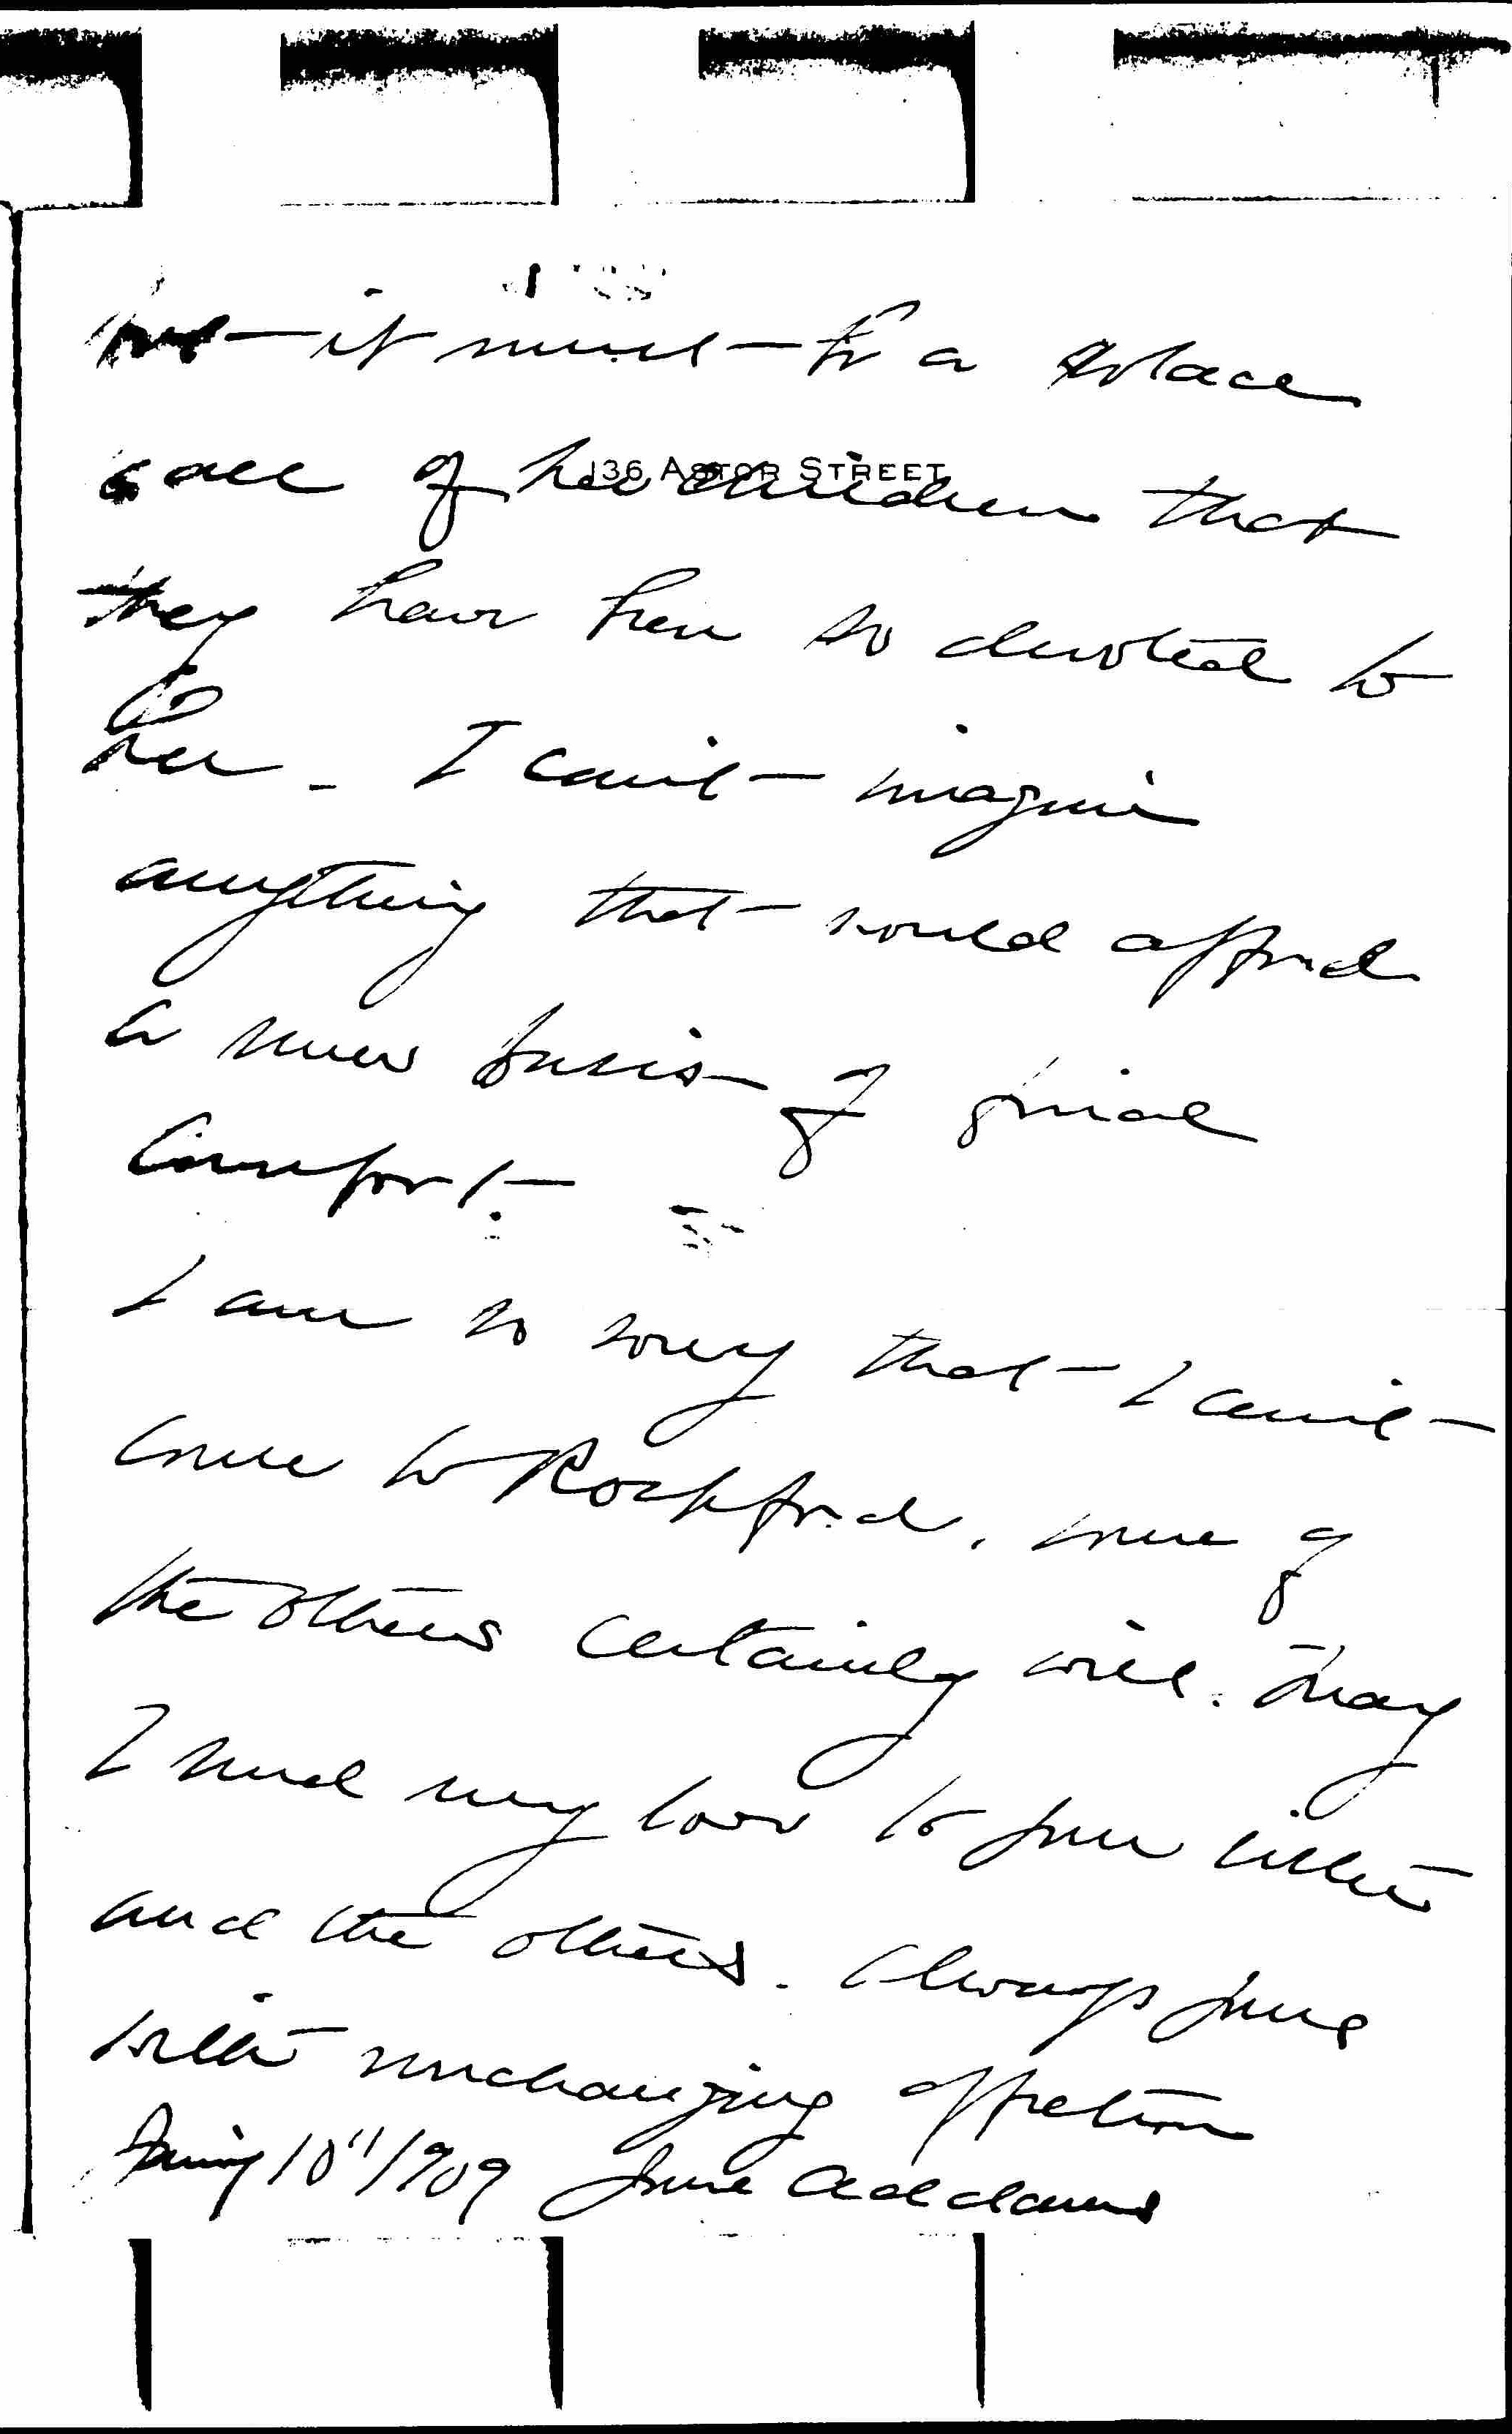 but it must be a solace
136 ASTOR STREET
to all of her children that
they have been so devoted to
her - I can't imagine
anything that would afford
a more basis of
comfort.
I am so sorry that I can't
come to Rockford, some of
the others certainly will. May
I send my love to your sister
and the others. Always yours
with unchanging affection
10" 1909 Jane Addams